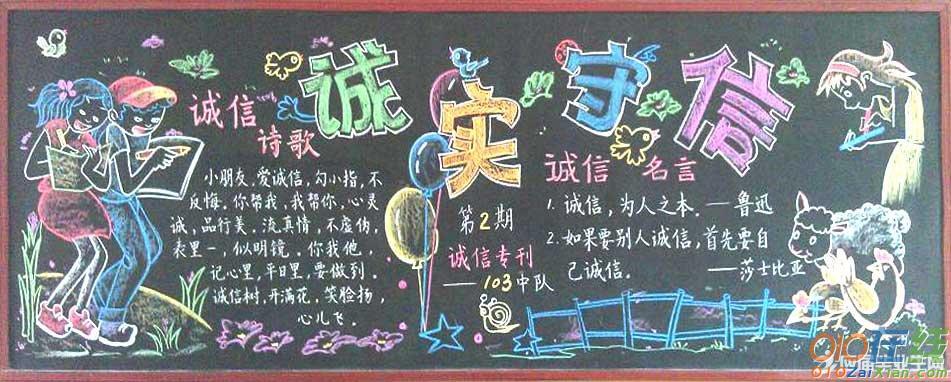 诚实守信
诚信
诗歌
小朋友,爱诚信,勾小指,不
反悔。你帮我,我帮你,心灵
诚,品行美。流真情,不虚伪,
表里一,似明镜。你我他,
记心里,平日里,要做到。
诚信树,开满花,笑脸扬,
心儿飞。
第2期
诚信专刊
——103中队
诚信 名言
1.诚信,为人之本。——鲁迅
2.如果要别人诚信,首先要自
己诚信。 ——莎士比亚
010在线
010ZaiXian.com